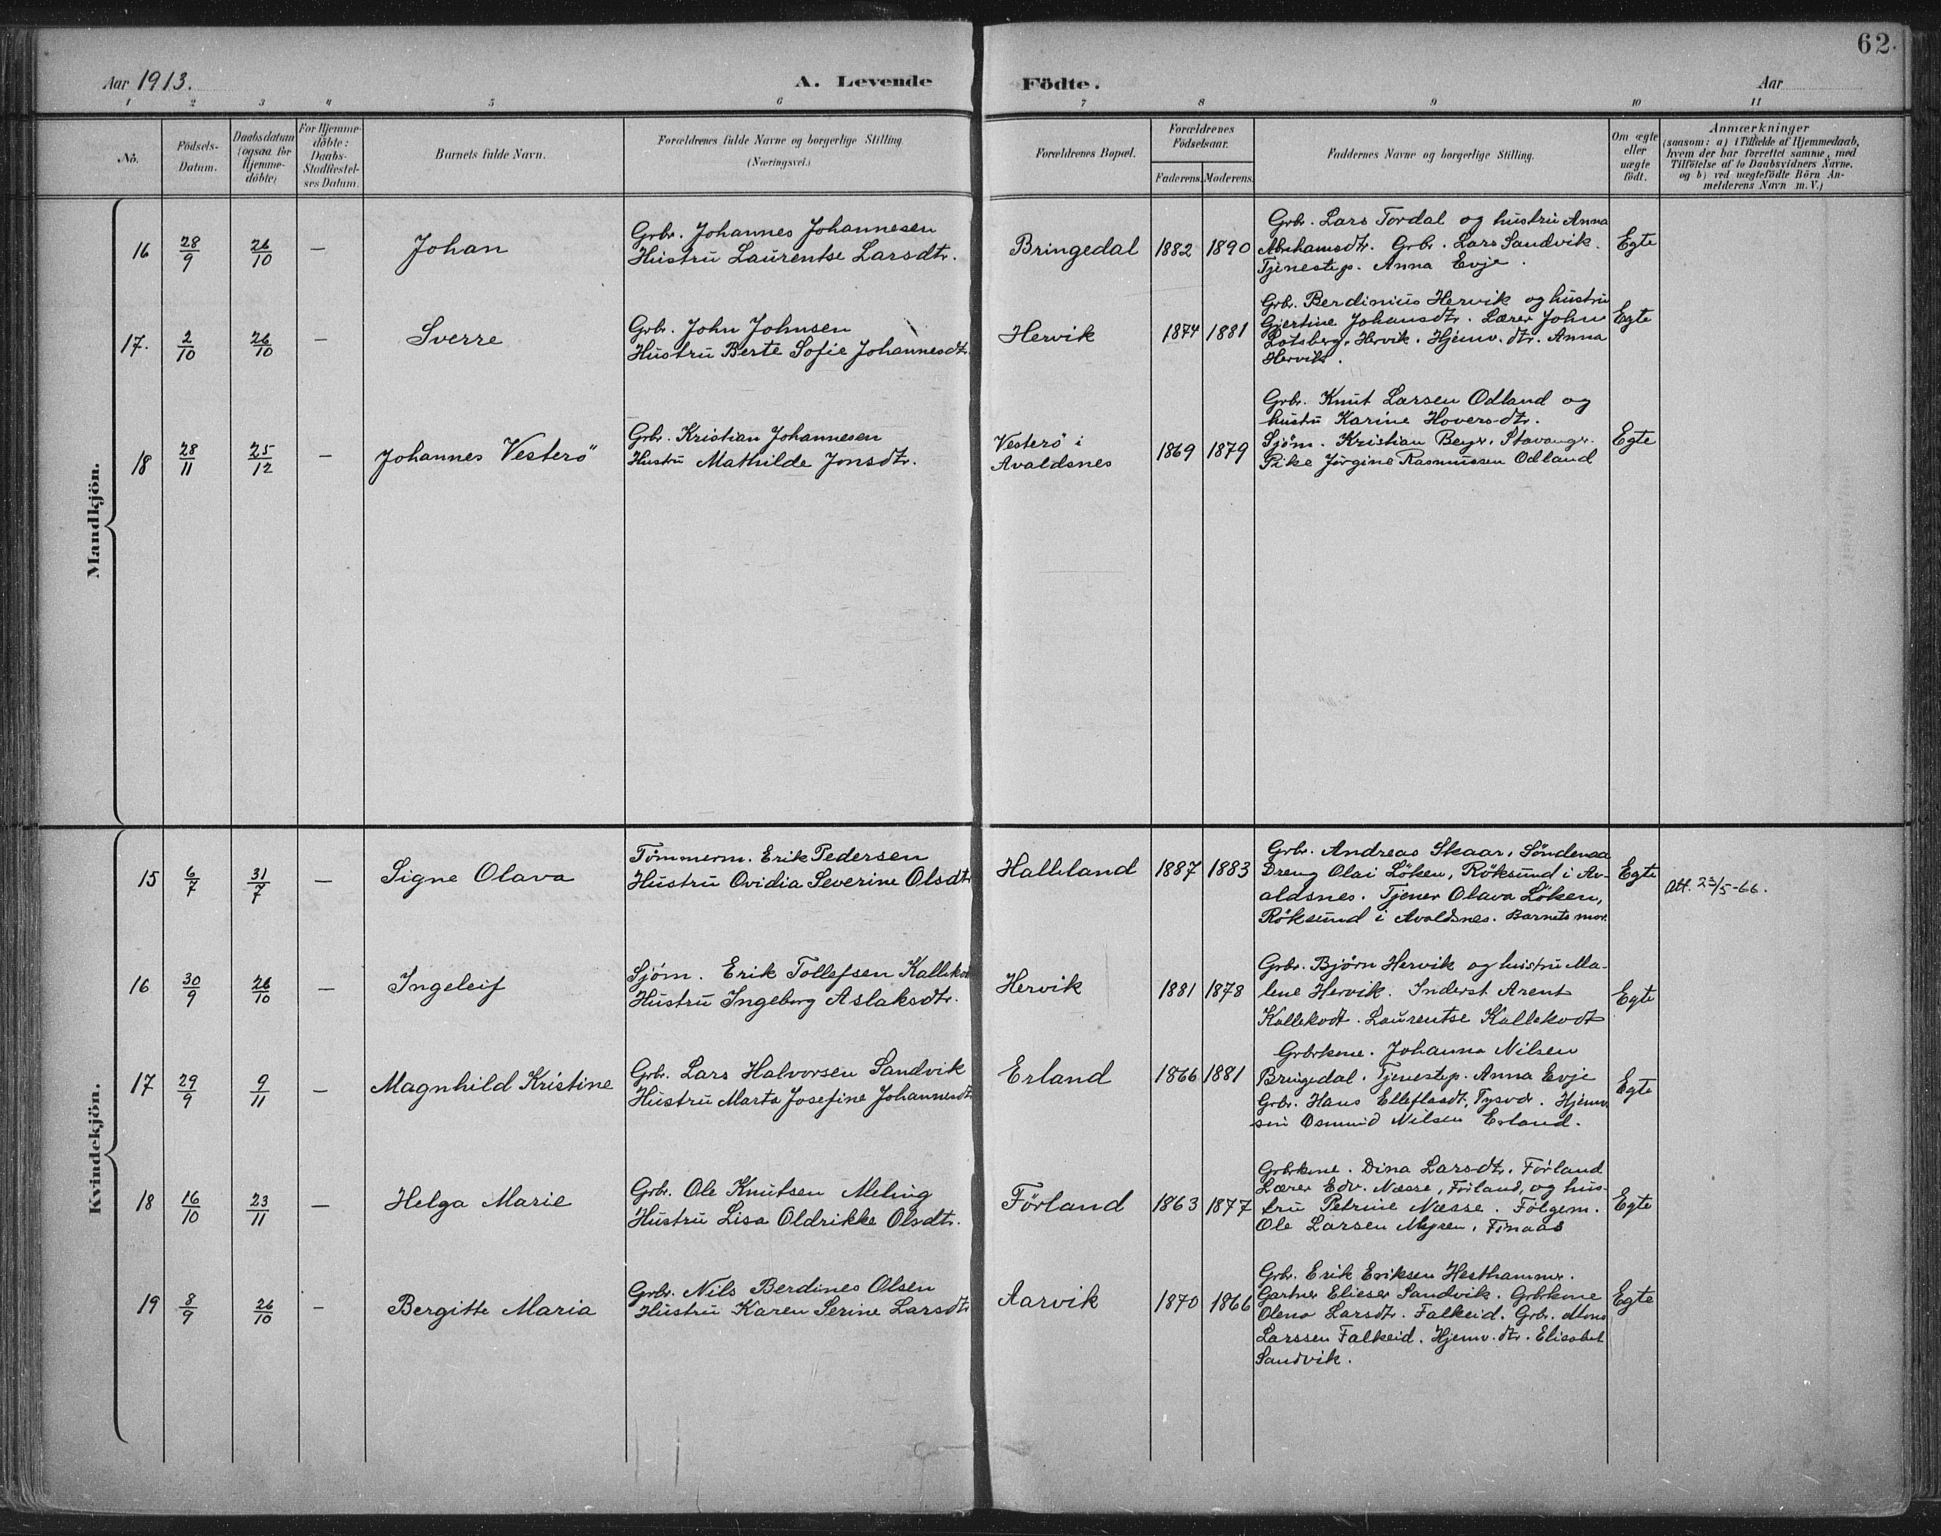 62.
Aar 1913. A. Levende Födte. Aar
1 2 3 4 5 6 7 8 9 10 11
No. Födsels-Datum. Daabsdatum (ogsaa for Hjemme-döbte) For Hjemme-döbte: Daabs-Stadfæstel-ses Datum. Barnets fulde Navn. Forældrenes fulde Navne og borgerlige Stilling (Næringsvei.) Forældrenes Bopæl. Forældrenes Födselsaar. Faderens. Moderens. Faddernes Navne og borgerlige Stilling. Om ægte eller uægte födt. Anmærkninger (saasom: a) i Tilfælde af Hjemmedaab, hvem der har forrettet samme, med Tilföielse af to Daabsvidners Navne. og b) ved uægtefödte Börn An-melderens Navn m. V.)
Mandkjön.
16 28/9 26/10 — Johan Grbr. Johannes Johannesen
Hustru Laurentse Larsdtr. Bringedal 1882 1890 Egte
Grbr. Lars Tordal og hustru Anna
Abrahamsdtr. Grbr. Lars Sandvik.
Tjenestep. Anna Evje.
17. 2/10 26/10 — Sverre Grbr. John Johnsen
Hustru Berte Sofie Johannesdtr. Hervik 1874 1881 Egte
Grbr. Berdinius Hervik og hustru
Gjertine Johansdtr. Lærer John
Lotsberg, Hervik. Hjemv. dtr. Anna
Hervik.
18 28/11 25/12 — Johannes Vesterö Grbr. Kristian Johannesen
Hustru Mathilde Jonsdtr. Vesterö i
Avaldsnes 1869 1879 Egte
Grbr. Knut Larsen Odland og
hustu Karine Hoversdtr.
Sjøm. Kristian Beyer, Stavanger.
Pike Jørgine Rasmussen Odland
Kvindekjön.
15 6/7 31/7 — Signe Olava Tømmerm. Erik Pedersen
Hustru Ovidia Severine Olsdtr Halleland 1887 1883 Egte Att. 23/5-66.
Grbr. Andreas Skaar, Söndenaa
Dreng Olai Löken, Röksund i Av-
aldsnes. Tjener Olava Löken,
Röksund i Avaldsnes. Barnets mor.
16 30/9 26/10 — Ingeleif Sjøm. Erik Tollefsen Kallekodt
Hustru Ingeborg Aslaksdtr. Hervik 1881 1878 Egte
Grbr. Bjørn Hervik og hustru Ma-
lene Hervik. Inderst Arent
Kallekodt. Laurentse Kallekodt
17 29/9 9/11 — Magnhild Kristine Grbr. Lars Halvorsen Sandvik
Hustru Marta Josefine Johannesdtr Erland 1866 1881 Egte
Grbrkone. Johanna Nilsen
Bringedal. Tjenestep. Anna Evje
Grbr. Hans Tysvær. Hjemv.
sön Osmund Nilsen Erland.
18 16/10 23/11 — Helga Marie Grbr. Ole Knutsen Meling
Hustru Lisa Oldrikke Olsdtr. Förland 1863 1877 Egte
Grbrkone. Dina Larsdtr. Förland
Lærer Edv. Næsse, Förland, og hus-
tru Petrine Næsse. Følgem.
Ole Larsen Myren, Finaas
19 8/9 26/10 — Bergitte Maria Grbr. Nils Berdines Olsen
Hustru Karen Serine Larsdtr Aarvik 1870 1866 Egte
Grbr. Erik Eriksen Hesthammer.
Gartner Elieser Sandvik. Grbrkone
Olena Larsdtr. Falkeid. Grbr.
Larssen Falkeid. Hjemv. dtr. Elisabet
Sandvik.